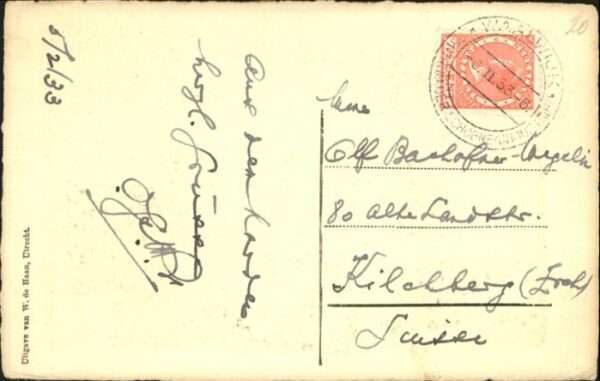 5/2/33
Aus dem Norden
herzl. Grüsse
Uitgave van W. de Haan, Utrecht.
20
WAALWIJK
II.33
Mme
Olf Bachofner-Wegelin
80 Alte Landstr.
Kilchberg (Zrch)
Suisse